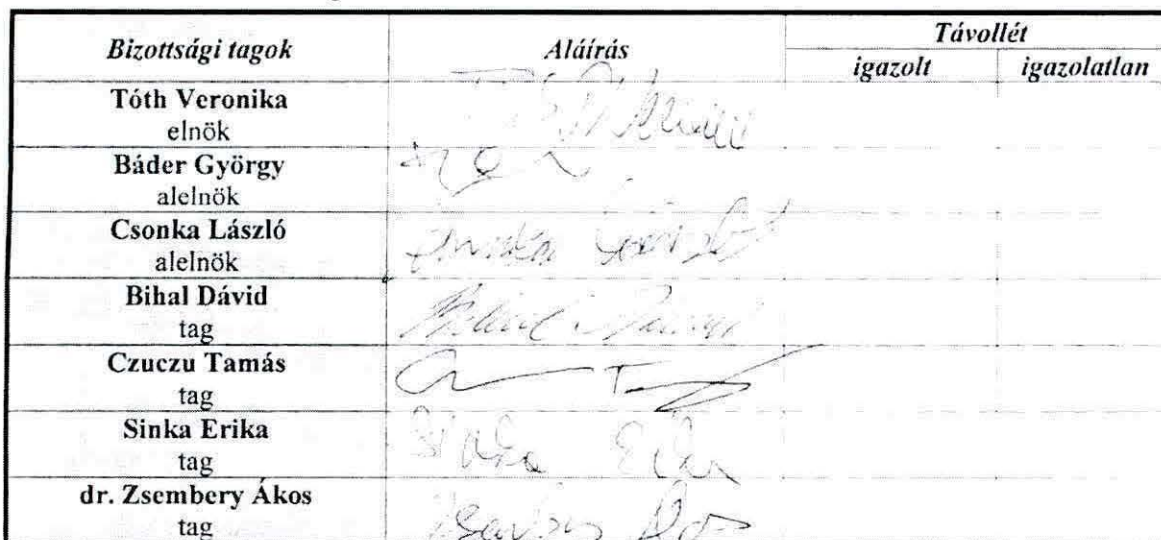 Bizottsági tagok Aláírás Távollét
igazolt igazolatlan
Tóth Veronika
elnök
Báder György
alelnök
Csonka László
alelnök
Bihal Dávid
tag
Czuczu Tamás
tag
Sinka Erika
tag
dr. Zsembery Ákos
tag